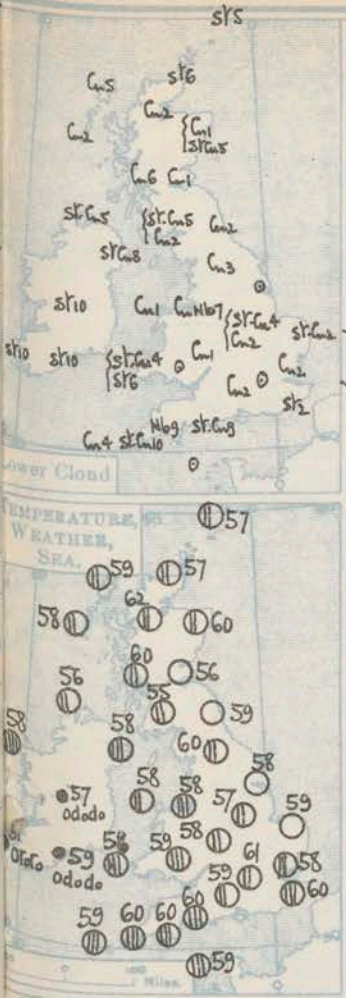 st5
st6
Cu5
Cu2
Cu2
Cu1
St.Cu5
Cu6 Cu1
St.Cu5
St.Cu5
Cu2
Cu2
St.Cu8
Cu3
St10
Cu1
CuNb7
St.Cu4
Cu2
St.Cu2
St10
St10
St.Cu4
St6
Cu1
Cu2
Cu2
St2
Nb9 St.Cu9
Cu4 St.Cu10
Lower Cloud
TEMPERATURE,
WEATHER,
SEA.
57
59
57
58
62
60
60
56
56
55
59
58
58
60
58
57
58
58
57
59
ododo
58
61
59
ororo
ododo
59
61
58
59
60
60
59
60
60
59
Miles